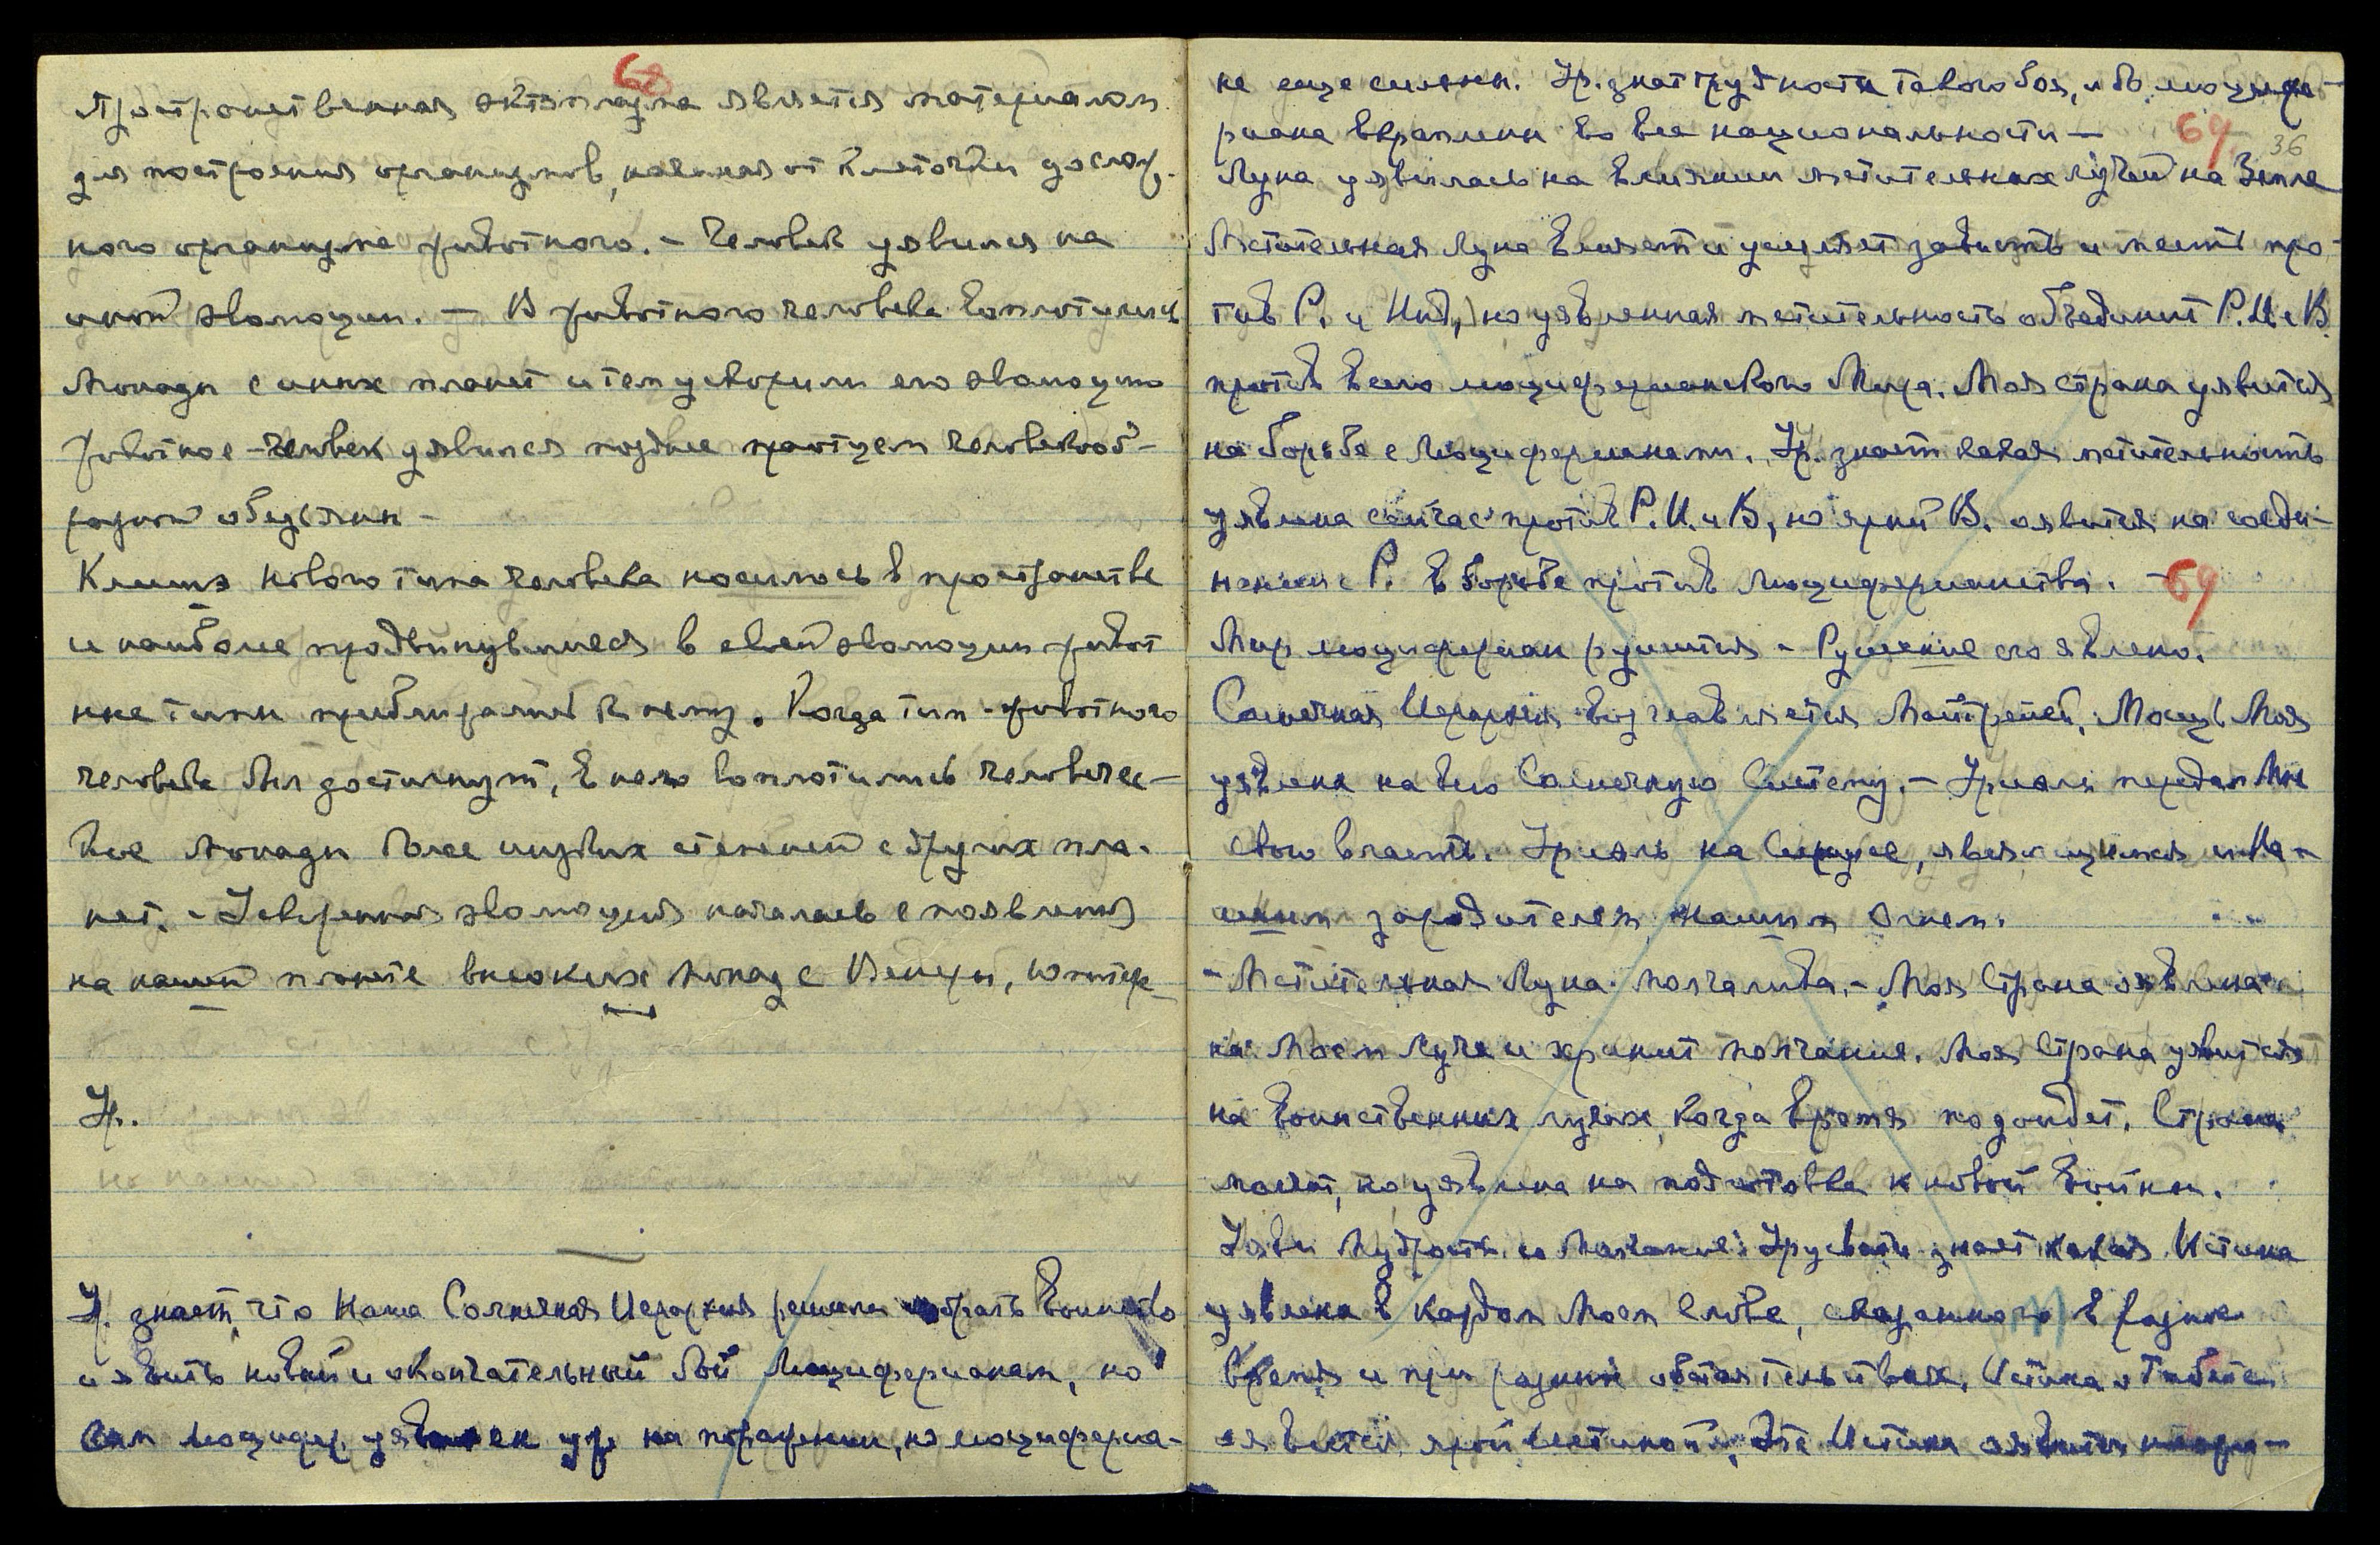 68
Пространственная эктоплазма является материалом
для построения организмов, начиная от клеточки до слож-
ного организма животного. – Человек уявился на
иной эволюции. – В животного человека воплотились
Монады с иных планет и тем ускорили его эволюцию
животное-человек уявился позднее праотцем человекооб-
разной обезьяны –
Клише нового типа человека носилось в пространстве
и наиболее продвинувшиеся в своей эволюции живот
ные типы приближались к нему. Когда тип животного
человека был достигнут, в него воплотились человечес-
кие Монады более низких степеней с других пла-
нет. – Ускоренная эволюция началась с появления
на нашей планете высоких Монад с Венеры, Юпитер
Ур.
Ур. знает, что Наша Солнечная Иерархия решила собрать Воинство
и явить новый и окончательный бой Люциферианам, но
сам Люцифер уявлен уже на поражении, но люцифериа-
не еще сильны. Ур. знает трудность такого боя, ибо люцифе-
риане вкраплены во все национальности –
69 36
Луна уявилась на влиянии мстительных лучей на Земле
Мстительная Луна влияет и усиляет зависть и месть про-
тив Р. и Инд, но уявленная мстительность объединит Р. И. и В
против всего люциферианского Мира. Моя страна уявится
на борьбе с Люциферианами. Ур. знает какая мстительность
уявлена сейчас против Р. И. и В, но ярый В. оявится на соеди-
нении с Р. в борьбе против Люциферианства. –
69
Мир люцифериан рушится – Рушение его явлено.
Солнечная Иерархия возглавляется Матрейей, Мощь Моя
уявлена на всю Солнечную Систему. – Уриэль передал Мне
свою власть. Уриэль на Сириусе, являющимся и На-
шим зародителем, нашим Огнем.
– Мстительная Луна молчалива. – Моя Страна оявлена
на Моем Луче и хранит молчание. Моя Страна уявится
на воинственных лучах, когда время подойдет. Страна
молчит, но уявлена на подготовке к новой войне.
Уяви Мудрость и Молчание. Урусвати знает какая Истина
уявлена в каждом Моем Слове, сказанного в разное
время и при разных обстоятельствах. Истина о Тибете
оявится ярой Истиной. Эта Истина оявится